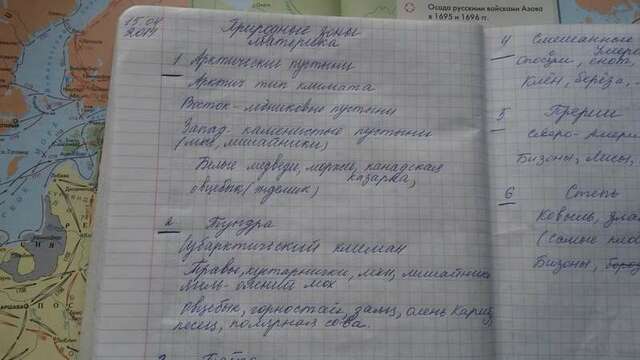 Осада русскими войсками Азова
в 1695 и 1696 гг.
15.04
2019
Природные зоны
материка
1 Арктические пустыни
Арктич тип климата
Восток - ледниковые пустыни
Запад - каменистые пустыни
(мхи, лишайники)
Белые медведи, моржи, канадская
казарка,
овцебык (эндемик)
2 Тундра
Субарктический климат
Травы, кустарнички, мхи, лишайники
Ягель - олений мох
Овцебык, горностай, заяц, олень Кариб,
песец, полярная сова.
3 Тайга
4 Смешанные
опосум, енот,
Клён, берёза,
5 Прерии
Северо-Америк
Бизоны, Лисы,
6 Степь
Ковыль, зла
(самые пло
Бизоны,